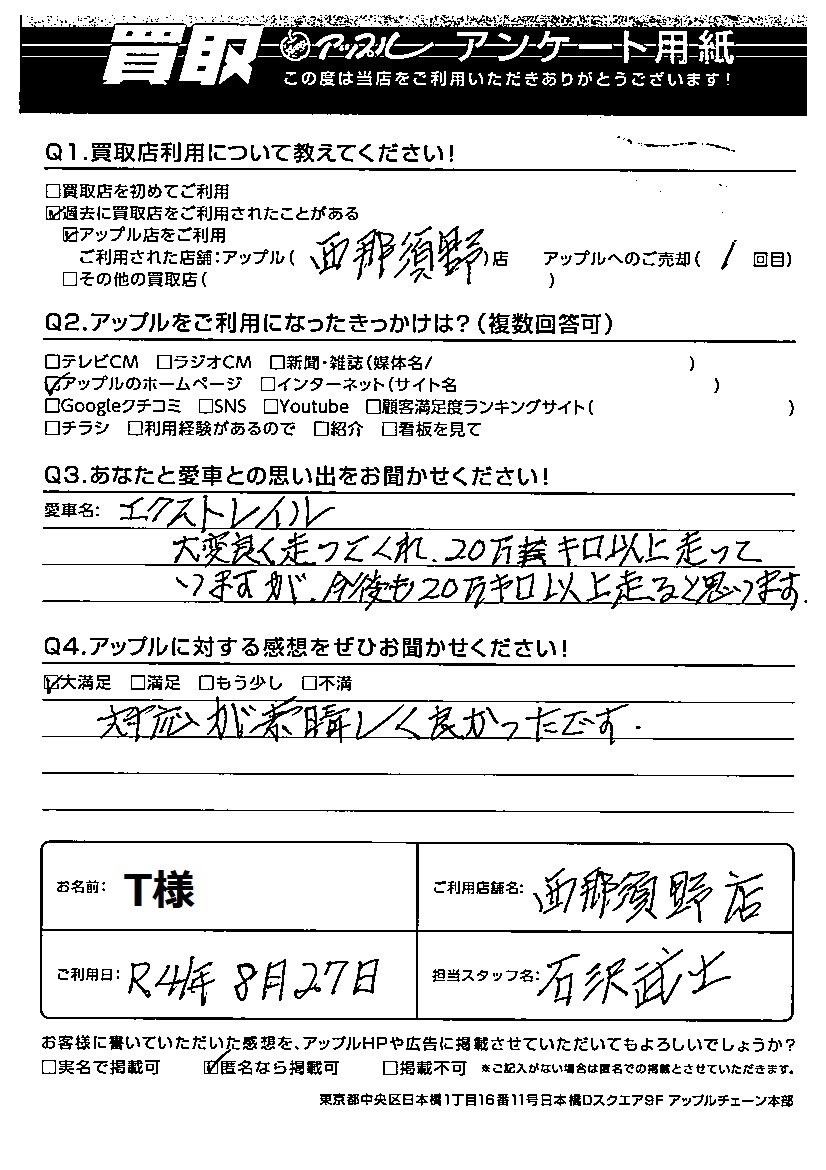 買取 アップル アンケート用紙
この度は当店をご利用いただきありがとうございます!
Q1.買取店利用について教えてください!
□買取店を初めてご利用
☑過去に買取店をご利用されたことがある
☑アップル店をご利用
ご利用された店舗:アップル(西那須野)店 アップルへのご売却(1回目)
□その他の買取店( )
Q2.アップルをご利用になったきっかけは?(複数回答可)
□テレビCM □ラジオCM □新聞・雑誌(媒体名/ )
☑アップルのホームページ □インターネット(サイト名 )
□Googleクチコミ □SNS □Youtube □顧客満足度ランキングサイト( )
□チラシ □利用経験があるので □紹介 □看板を見て
Q3.あなたと愛車との思い出をお聞かせください!
愛車名: エクストレイル
大変良く走ってくれ、20万キロ以上走って
いますが、今後も20万キロ以上走ると思います。
Q4.アップルに対する感想をぜひお聞かせください!
☑大満足 □満足 □もう少し □不満
対応が素晴しく良かったです.
お名前: T様 ご利用店舗名: 西那須野店
ご利用日: R.4年8月27日 担当スタッフ名: 石沢武士
お客様に書いていただいた感想を、アップルHPや広告に掲載させていただいてもよろしいでしょうか?
□実名で掲載可 ☑匿名なら掲載可 □掲載不可 ※ご記入がない場合は匿名での掲載とさせていただきます。
東京都中央区日本橋1丁目16番11号日本橋Dスクエア9F アップルチェーン本部